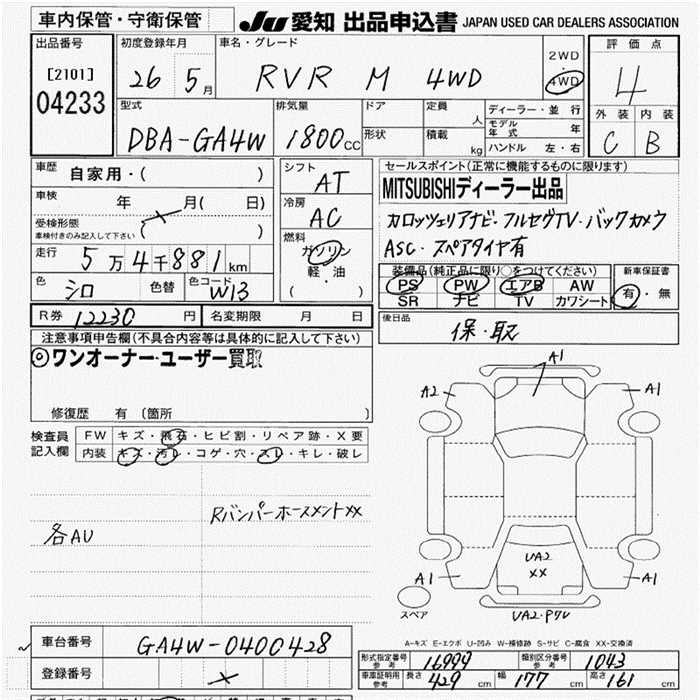 車内保管・守衛保管
JU 愛知 出品申込書 JAPAN USED CAR DEALERS ASSOCIATION
出品番号
[2101]
04233
初度登録年月
26 5月
車名・グレード
RVR M 4WD
2WD
4WD
評価点
4
型式
DBA-GA4W
排気量
1800cc
ドア
形状
定員
人
積載
kg
ディーラー・並行
モデル年式 年
ハンドル 左・右
外装 内装
C B
車歴
自家用・( )
車検 年 月( 日)
受検形態
車検付きのみ記入して下さい ( )
走行 5万4千881km
色 シロ 色替 色コード W13
シフト
AT
冷房
AC
燃料
ガソリン
軽・油
( )
セールスポイント(正常に機能するものに限ります)
MITSUBISHIディーラー出品
カロッツェリアナビ・フルセグTV・バックカメラ
ASC・スペアタイヤ有
装備品(純正品に限り○をつけてください)
PS PW エアB AW
SR ナビ TV カワシート
新車保証書
有・無
R券 12230円 名変期限 月 日
後日品
保・取
注意事項申告欄(不具合内容等は具体的に記入して下さい)
◎ワンオーナー・ユーザー買取
修復歴 有 〔箇所 〕
検査員記入欄
FW キズ・飛石・ヒビ割・リペア跡・X要
内装 キズ・汚レ・コゲ・穴・スレ・キレ・破レ
Rバンパーホースメントxx
各AU
A1
A2
A1
UA2
xx
A1
A1
UA2・P
スペア
A-キズ E-エクボ U-凹み W-補修跡 S-サビ C-腐食 XX-交換済
車台番号 GA4W-0400428
登録番号
形式指定番号 参考 16999 類別区分番号 参考 1043
車庫証明用 参考 長さ 429cm 幅 177cm 高さ 161cm